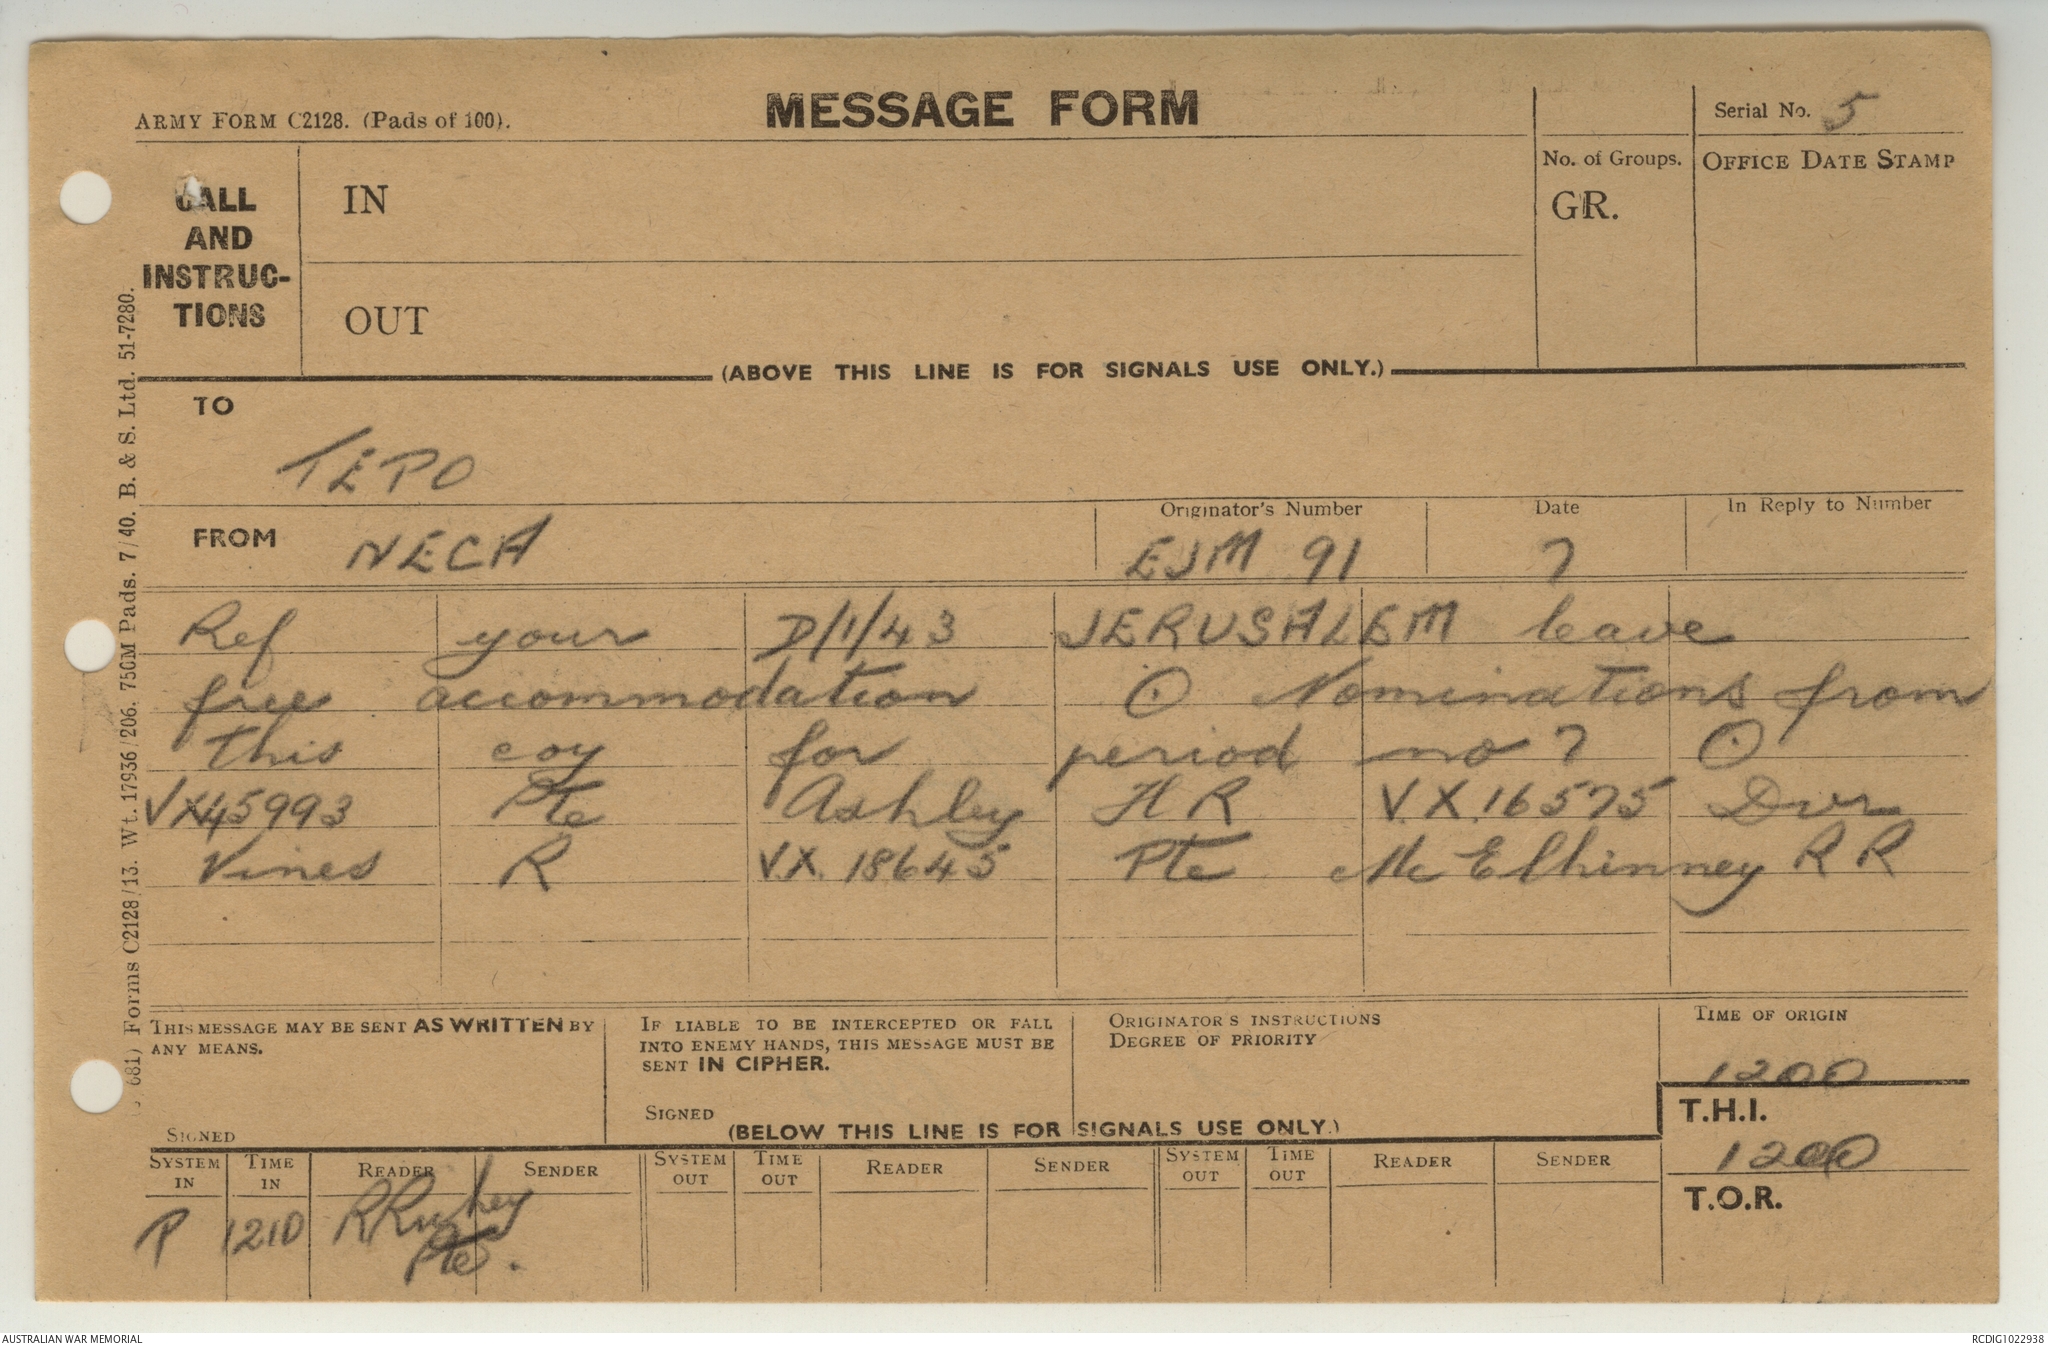 ARMY FORM C2128. (Pads of 100).
MESSAGE FORM
Serial No. 5
CALL
AND
INSTRUC-
TIONS
IN
OUT
No. of Groups.
GR.
OFFICE DATE STAMP
(ABOVE THIS LINE IS FOR SIGNALS USE ONLY.)
TO
TEPO
FROM NECA
Originator's Number
EJM 91
Date
7
In Reply to Number
Ref your D/1/43 JERUSALEM leave
free accommodation ⊙ Nominations from
this coy for period no 7 ⊙
VX45993 Pte Ashley H R V.X.16575 Dvr
Vines R V.X. 18645 Pte Mc Elhinney R R
THIS MESSAGE MAY BE SENT AS WRITTEN BY
ANY MEANS.
SIGNED
IF LIABLE TO BE INTERCEPTED OR FALL
INTO ENEMY HANDS, THIS MESSAGE MUST BE
SENT IN CIPHER.
SIGNED
ORIGINATOR'S INSTRUCTIONS
DEGREE OF PRIORITY
TIME OF ORIGIN
1200
(BELOW THIS LINE IS FOR SIGNALS USE ONLY.)
T.H.I.
1200
T.O.R.
SYSTEM IN
TIME IN
READER
SENDER
SYSTEM OUT
TIME OUT
READER
SENDER
SYSTEM OUT
TIME OUT
READER
SENDER
P 1210
Pte.
681) Forms C2128/13. Wt. 17936/206. 750M Pads. 7/40. B. & S. Ltd. 51-7280.
AUSTRALIAN WAR MEMORIAL
RCDIG1022938